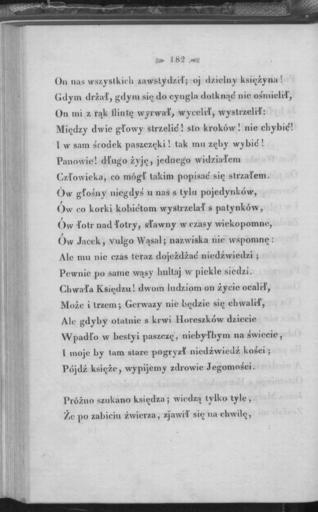 182
On nas wszystkich zawstydził; oj dzielny księżyna!
Gdym drżał, gdym się do cyngla dotknąć nie ośmielił,
On mi z rąk flintę wyrwał, wycelił, wystrzelił:
Między dwie głowy strzelić! sto kroków! nie chybić!
I w sam środek paszczęki! tak mu zęby wybić!
Panowie! długo żyję, jednego widziałem
Człowieka, co mógł takim popisać się strzałem.
Ów głośny niegdyś u nas z tylu pojedynków,
Ów co korki kobiétom wystrzelał s patynków,
Ów łotr nad łotry, sławny w czasy wiekopomne,
Ów Jacek, vulgo Wąsal; nazwiska nie wspomnę:
Ale mu nie czas teraz dojeżdżać niedźwiedzi;
Pewnie po same wąsy hultaj w piekle siedzi.
Chwała Księdzu! dwom ludziom on życie ocalił,
Może i trzem; Gerwazy nie będzie się chwalił,
Ale gdyby otatnie s krwi Horeszków dziecie
Wpadło w bestyi paszczę, niebyłbym na świecie,
I moje by tam stare pogryzł niedźwiedź kości;
Pójdź księże, wypijemy zdrowie Jegomości.
Próżno szukano księdza; wiedzą tylko tyle,
Że po zabiciu źwierza, zjawił się na chwilę,